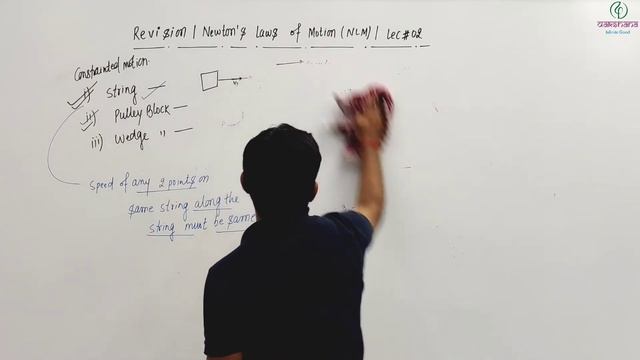 Revision | Newton's Laws of Motion (NLM) | Lec#02
Constrainted motion.
i) String
ii) Pulley Block —
iii) Wedge " —
Speed of any 2 points on
same string along the
string must be same
dakshana
Infinite Good